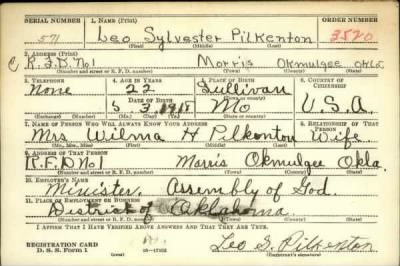 SERIAL NUMBER 1. NAME (Print) ORDER NUMBER
571 Leo Sylvester Pilkenton 3520
(First) (Middle) (Last)
2. ADDRESS (Print)
R.F.D. No 1 Morris Okmulgee Okla
(Number and street or R. F. D. number) (Town) (County) (State)
3. TELEPHONE 4. AGE IN YEARS 5. PLACE OF BIRTH 6. COUNTRY OF CITIZENSHIP
None 22 Sullivan
DATE OF BIRTH (Town or county)
5 3 1918 Mo U.S.A.
(Exchange) (Number) (Mo.) (Day) (Yr.) (State or country)
7. NAME OF PERSON WHO WILL ALWAYS KNOW YOUR ADDRESS 8. RELATIONSHIP OF THAT PERSON
Mrs Wilma H Pilkenton Wife
(Mr., Mrs., Miss) (First) (Middle) (Last)
9. ADDRESS OF THAT PERSON
R.F.D No 1 Morris Okmulgee Okla.
(Number and street or R. F. D. number) (Town) (County) (State)
10. EMPLOYER'S NAME
Minister, Assembly of God.
11. PLACE OF EMPLOYMENT OR BUSINESS
District of Oklahoma.
(Number and street or R. F. D. number) (Town) (County) (State)
I AFFIRM THAT I HAVE VERIFIED ABOVE ANSWERS AND THAT THEY ARE TRUE.
REGISTRATION CARD
D. S. S. Form 1 Leo S. Pilkenton
(Registrant's signature)